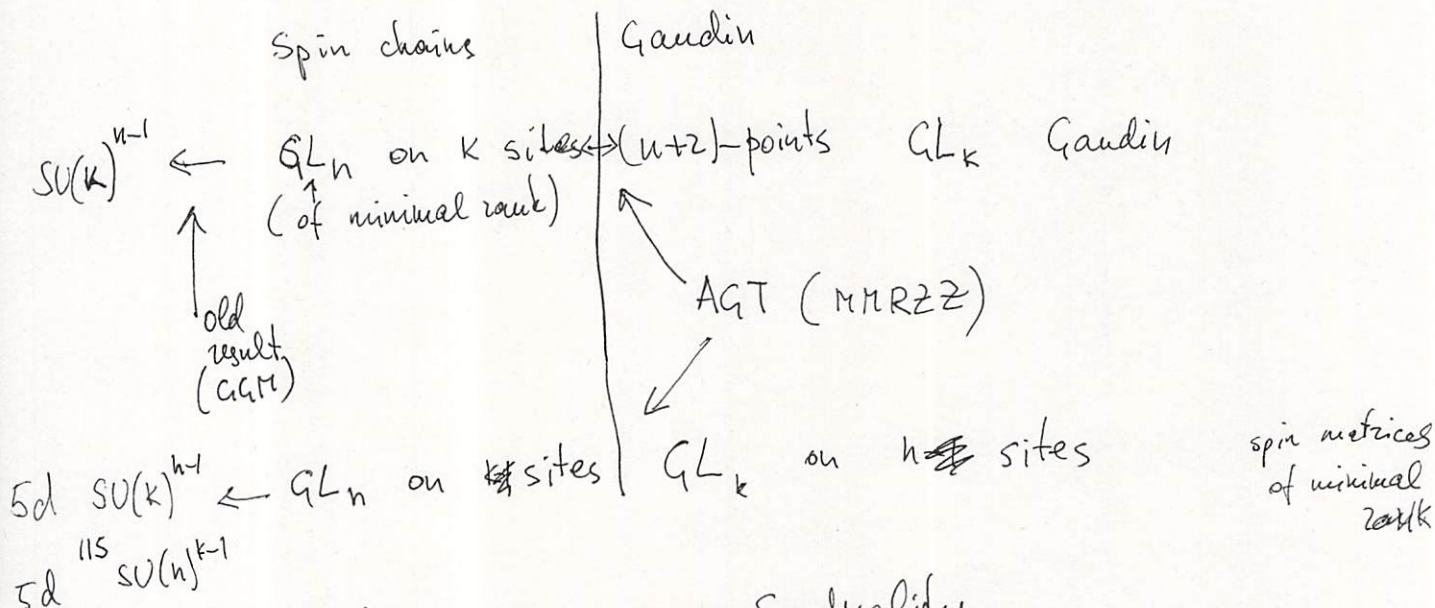 Spin chains | Gaudin
SU(k)^{n-1} ← GL_n on k sites ↔ (n+2)-points GL_k Gaudin
(of minimal rank)
AGT (MMRZZ)
old
result
(GGM)
5d SU(k)^{n-1} ← GL_n on k sites | GL_k on n sites
spin matrices
of minimal
rank
5d SU(n)^{k-1}